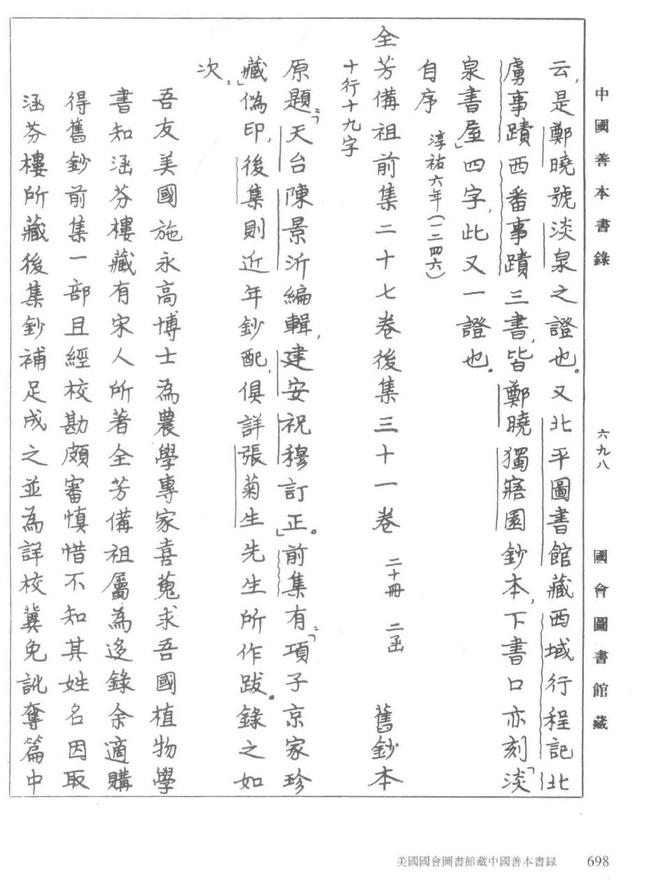 中國善本書錄　六九八　國會圖書館藏
云，是鄭曉號淡泉之證也。又北平圖書館藏西域行程記北
虜事蹟西番事蹟三書，皆鄭曉獨寤園鈔本，下書口亦刻「淡
泉書屋」四字，此又一證也。
自序　淳祐六年（一二四六）
全芳備祖前集二十七卷後集三十一卷　二十冊　二函　舊鈔本
十行十九字
原題：「天台陳景沂編輯，建安祝穆訂正。」前集有「項子京家珍
藏」偽印，後集則近年鈔配，俱詳張菊生先生所作跋。錄之如
次。
吾友美國施永高博士為農學專家喜蒐求吾國植物學
書知涵芬樓藏有宋人所著全芳備祖屬為迻錄余適購
得舊鈔前集一部且經校勘頗審慎惜不知其姓名因取
涵芬樓所藏後集鈔補足成之並為詳校冀免訛奪篇中
美國國會圖書館藏中國善本書録　698